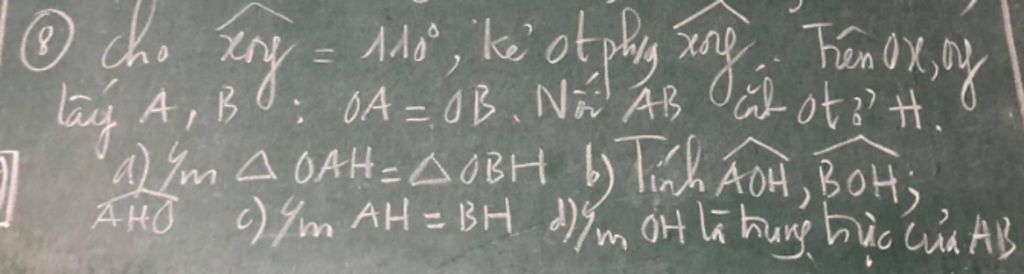 ⑧ Cho xOy = 110°, kẻ Ot phg xOy. Trên Ox, Oy
lấy A, B : OA = OB. Nối AB cắt Ot ở H.
a) C/m △ OAH = △ OBH b) Tính AOH, BOH;
AHO c) C/m AH = BH d) C/m OH là trung trực của AB